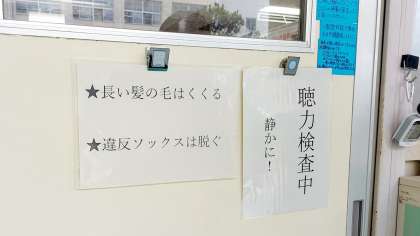 ★長い髪の毛はくくる
★違反ソックスは脱ぐ
聴力検査中
静かに！